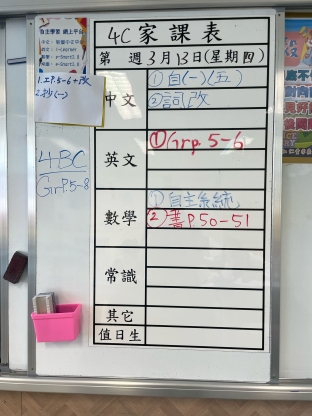 自主學習 網上平台
1. 工P.5-6+改
2. 抄(一)
4C 家課表
第 週3月13日(星期四)
中文
① 自(一)(五)
② 詞改
英文
① Grp. 5-6
4BC
Gr P.5-8
數學
① 自主系統
② 書P50-51
常識
其它
值日生